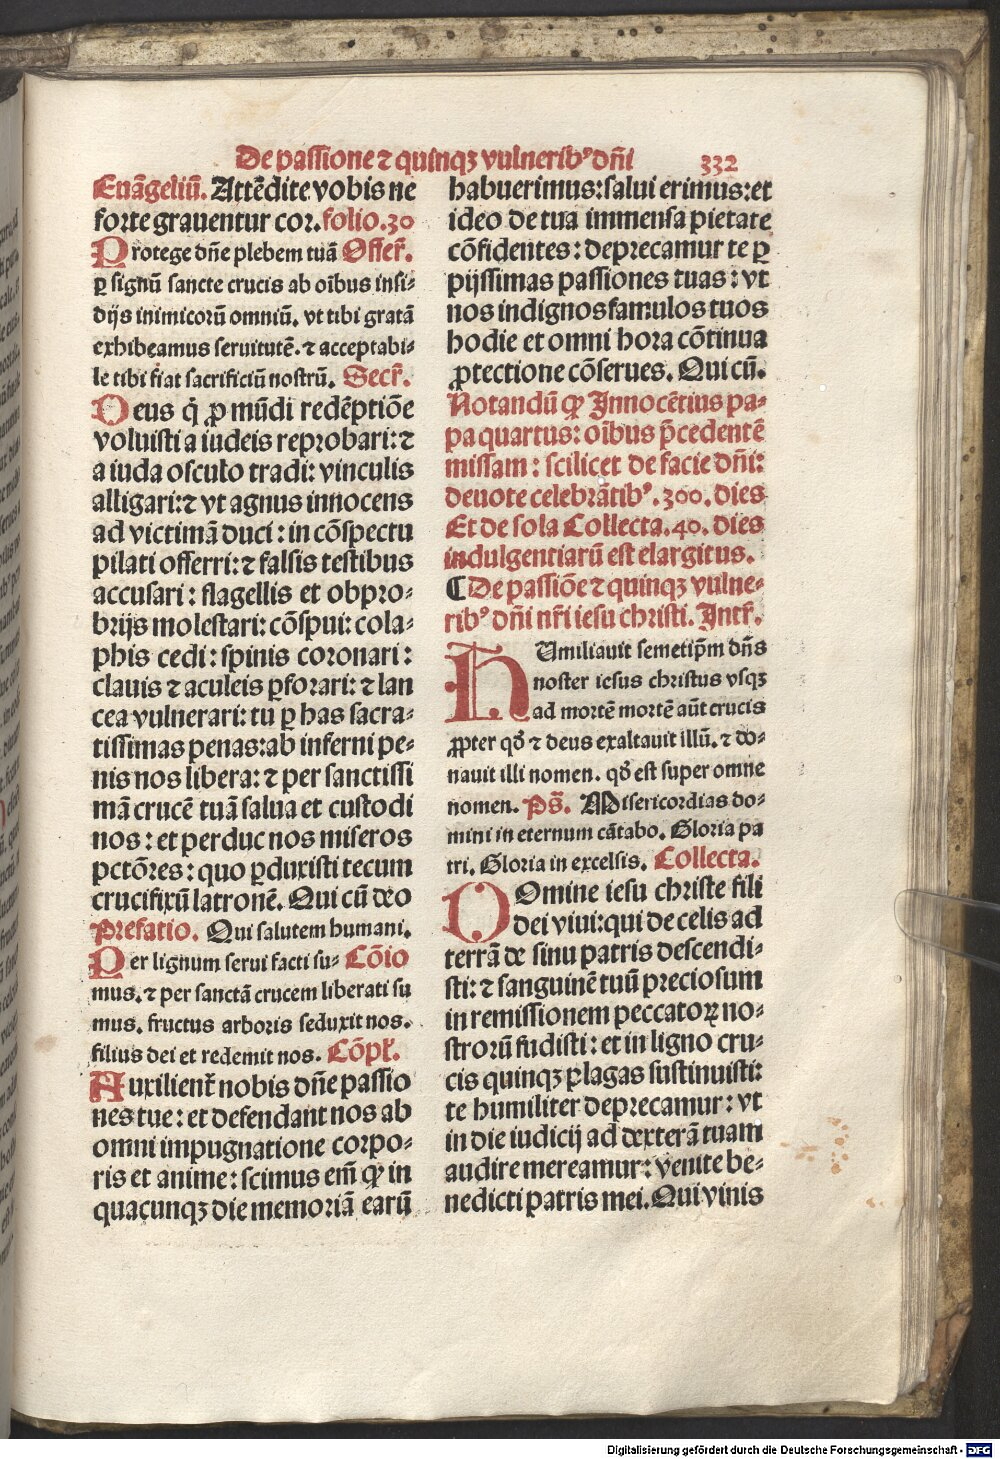 De passione ⁊ quinqꝫ vulneribꝰ dñi 332
Euãgeliũ. Attẽdite vobis ne
forte grauentur cor. folio.30
Protege dñe plebem tuã Offer̃.
ꝑ signũ sancte crucis ab oĩbus insi⸗
dijs inimicorũ omniũ. vt tibi gratã
exhibeamus seruitutẽ. ⁊ acceptabi⸗
le tibi fiat sacrificiũ nostrũ. Secr̃.
Deus q̇ ꝓ mũdi redẽptiõe
voluisti a iudeis reprobari: ⁊
a iuda osculo tradi: vinculis
alligari: ⁊ vt agnus innocens
ad victimã duci: in cõspectu
pilati offerri: ⁊ falsis testibus
accusari: flagellis et obpro⸗
brijs molestari: cõspui: cola⸗
phis cedi: spinis coronari:
clauis ⁊ aculeis ꝑforari: ⁊ lan
cea vulnerari: tu ꝑ has sacra⸗
tissimas penas: ab inferni pe⸗
nis nos libera: ⁊ per sanctissi
mã crucẽ tuã salua et custodi
nos: et perduc nos miseros
pctõres: quo ꝑduxisti tecum
crucifixũ latronẽ. Qui cũ deo
Prefatio. Qui salutem humani.
Per lignum serui facti su⸗ Cõio
mus. ⁊ per sanctã crucem liberati su
mus. fructus arboris seduxit nos.
filius dei et redemit nos. Cõpl̃.
Auxilient̃ nobis dñe passio
nes tue: et defendant nos ab
omni impugnatione corpo⸗
ris et anime: scimus em̃ ꝙ in
quacunqꝫ die memoriã earũ
habuerimus: salui erimus: et
ideo de tua immensa pietate
cõfidentes: deprecamur te ꝑ
pijssimas passiones tuas: vt
nos indignos famulos tuos
hodie et omni hora cõtinua
ꝓtectione cõserues. Qui cũ.
Notandũ ꝙ Innocẽtius pa⸗
pa quartus: oĩbus p̃cedentẽ
missam: scilicet de facie dñi:
deuote celebrãtibꝰ. 300. dies
Et de sola Collecta. 40. dies
indulgentiarũ est elargitus.
¶ De passiõe ⁊ quinqꝫ vulne⸗
ribꝰ dñi nr̃i iesu christi. Intr̃.
HUmiliauit semetip̃m dñs
noster iesus christus vsqꝫ
ad mortẽ mortẽ aũt crucis
ꝓpter qđ ⁊ deus exaltauit illũ. ⁊ do⸗
nauit illi nomen. qđ est super omne
nomen. Ps̃. Misericordias do⸗
mini in eternum cãtabo. Gloria pa
tri. Gloria in excelsis. Collecta.
DOmine iesu christe fili
dei viui: qui de celis ad
terrã de sinu patris descendi⸗
sti: ⁊ sanguinẽ tuũ preciosum
in remissionem peccatoꝝ no⸗
strorũ fudisti: et in ligno cru⸗
cis quinqꝫ plagas sustinuisti:
te humiliter deprecamur: vt
in die iudicij ad dexterã tuam
audire mereamur: venite be⸗
nedicti patris mei. Qui vinis
Digitalisierung gefördert durch die Deutsche Forschungsgemeinschaft - DFG